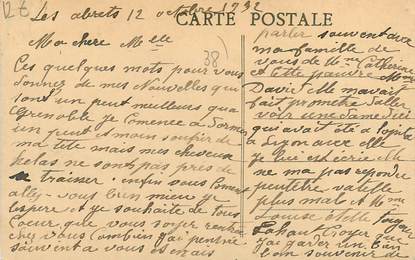 Les abrets 12 octobre 1932
CARTE POSTALE
Ma chere Melle
38)
Ces quelques mots pour vous
donner de mes nouvelles qui
sont un peut meilleurs qua
Grenoble je Comence a dormir
un peut et moin soufrir de
ma tete mais mes cheveux
helas ne sont pas pres de
traiser enfin vous Coment
alley-vous bien mieu je
espere et je souhaite de tous
Coeur que vous soyer rentre
chez vous Combien j'ai pensée
souvent a vous et mais
parler souvent avec
ma famille de
vous de Mme Catherine
et cette pauvre Mme
David elle mavait
fait prometre daller
voir une dame dici
qui avait été a lopital
a Lyon avec elle
je lui est écrie elle
ne ma pas reponde
peutetre vatelle
plus mal et Mme
Louise et elle
croyer que
j'ai garder un bien
bon souvenir de